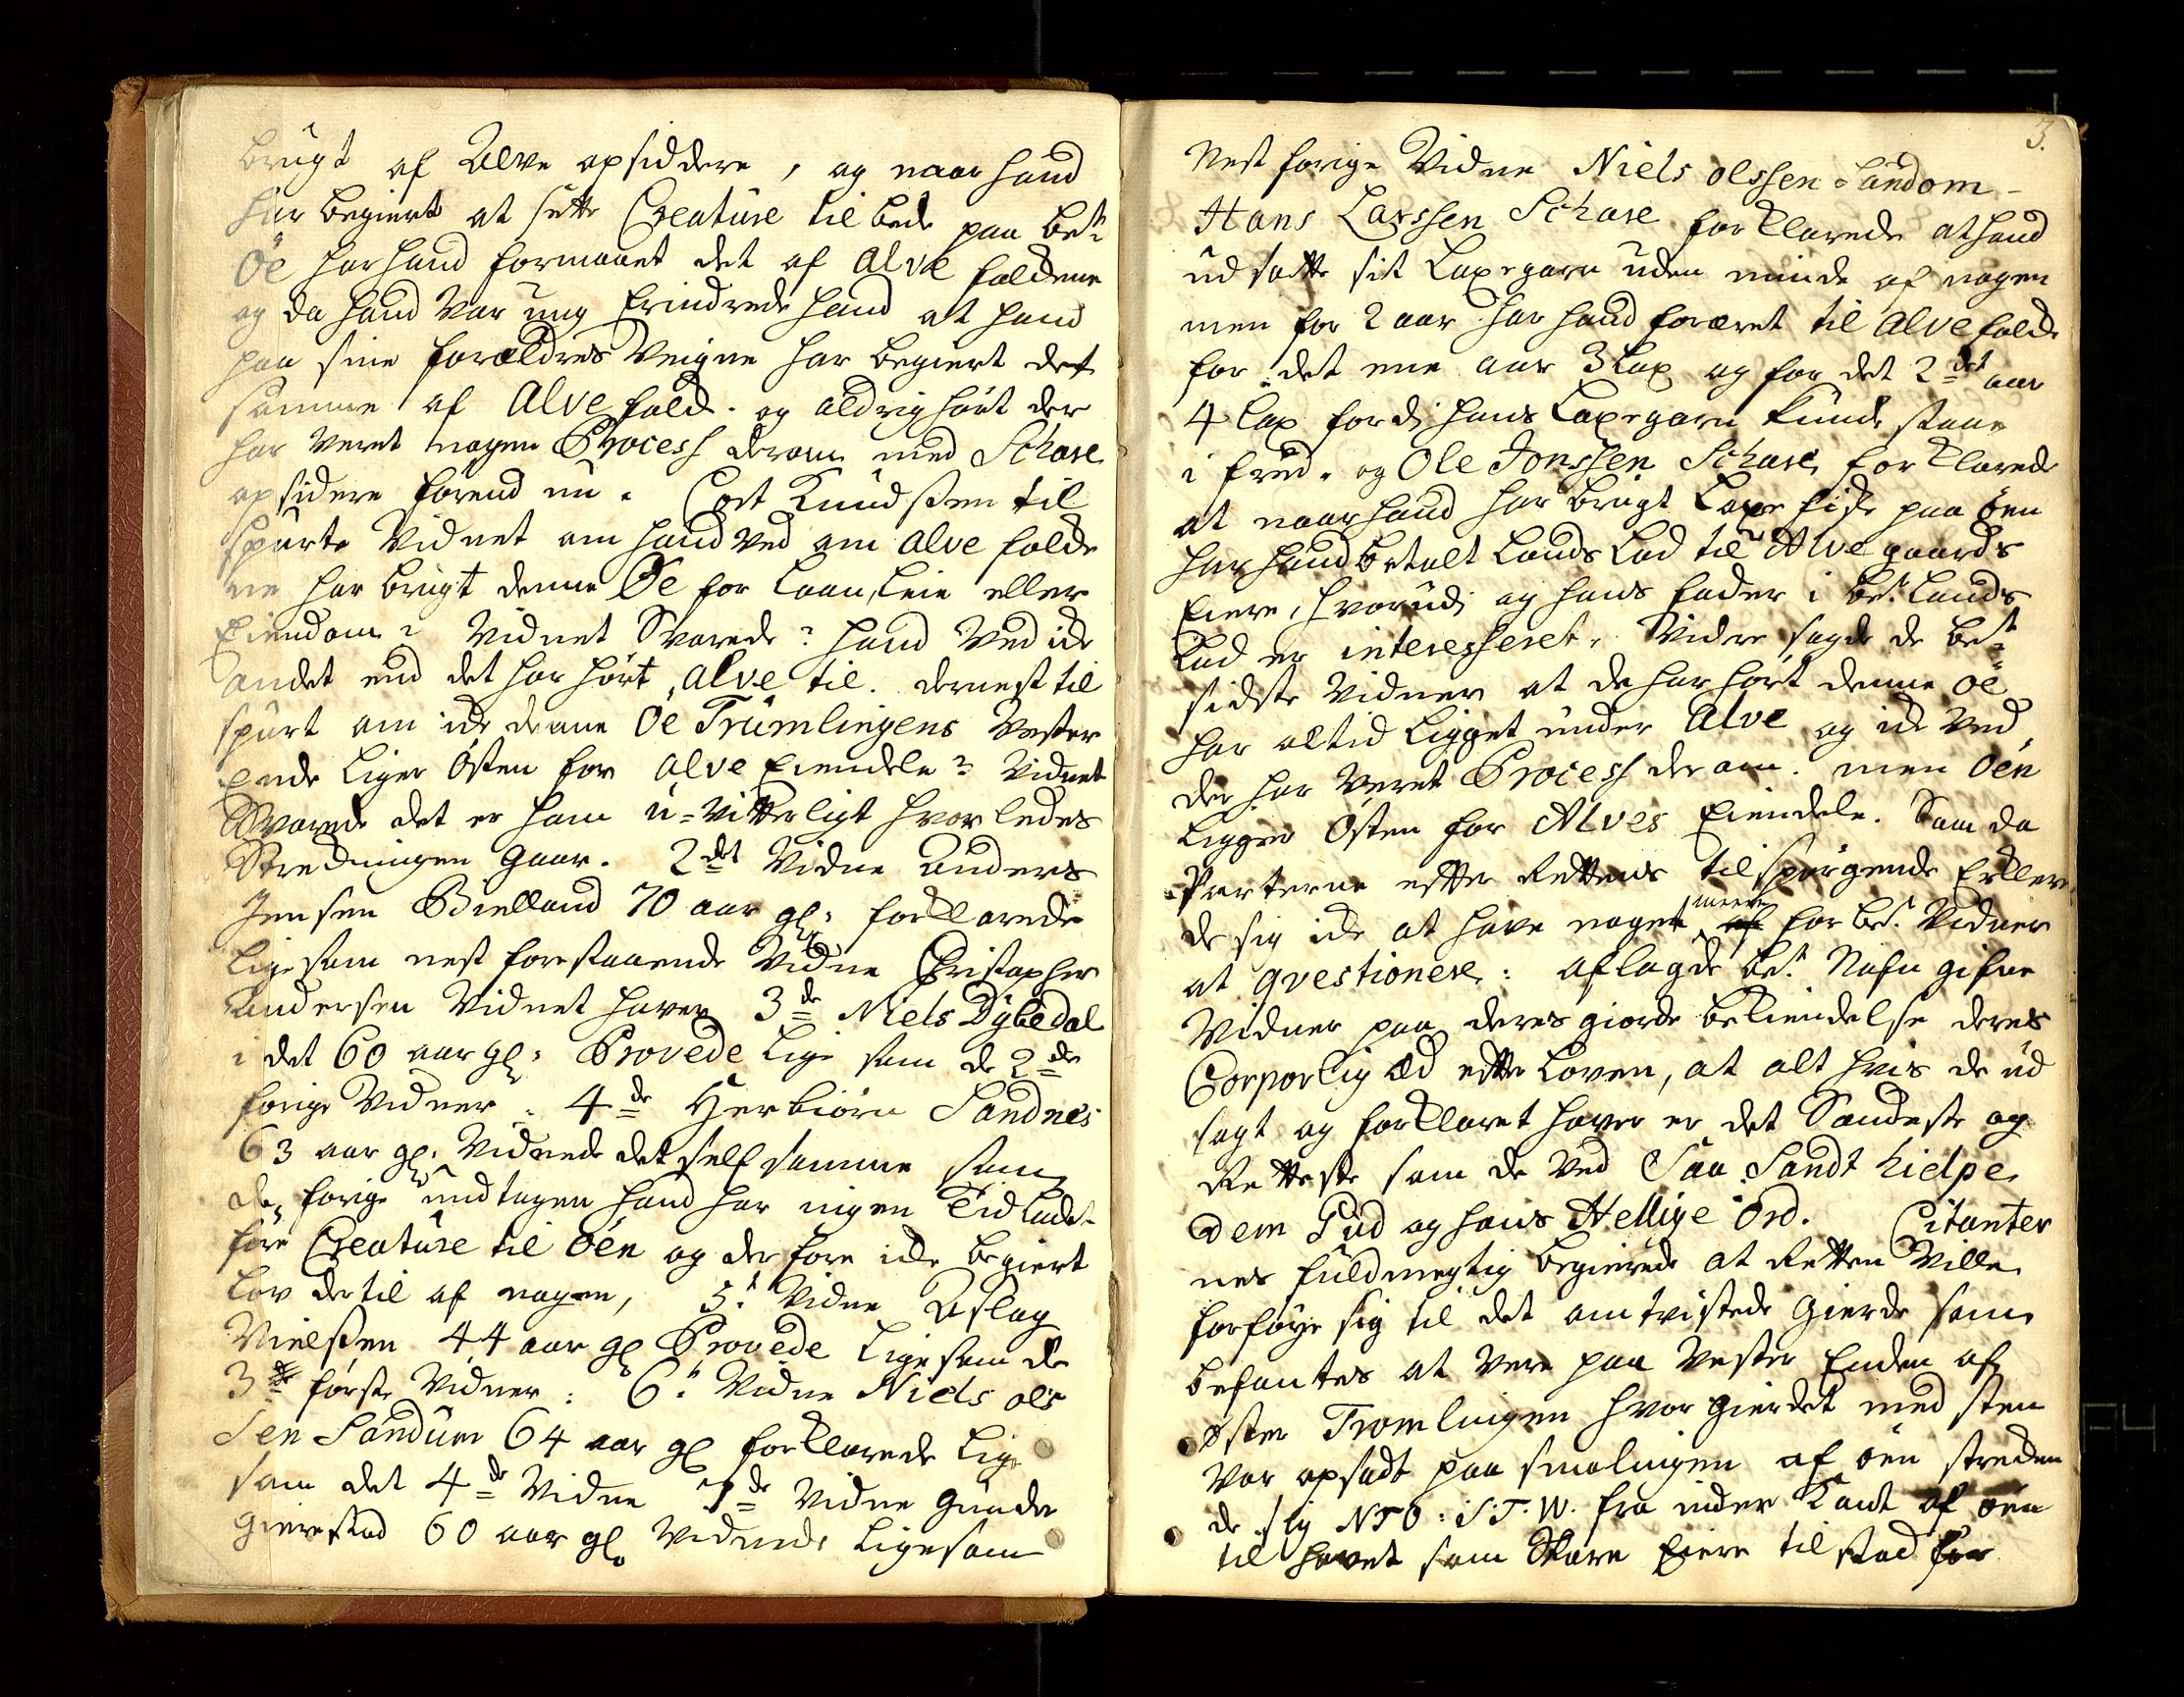 brugt af Alve opsiddere, og naar hand
har begiert at sette Creature til bede paa bete
Öe har hand formaaet det af Alve foldene
og da hand var ung Erindrede hand at hand
paa sine forældres Veigne har begiert det
samme af Alve fold. og aldrig hört der
har veret nogen Process derom med Schare
opsidere forend nu. Cort Knudssen til
spurte Vidnet om hand ved om Alve folde
ne har brugt denne Öe for laan, leie eller
Eiendom? Vidnet Svarede: hand Ved icke
andet end det har hört Alve til. dernest til
spurt om icke denne Öe Trumlingens Vester
Ende liger Östen for Alve Eiendele? Vidnet
Svarede det er ham u-vitterligt hvorledes
Stredningen gaar. 2det Vidne Anders
Jensen Bielland 70 aar gl: forklarede
ligesom nest forestaaende Vidne Christopher
Andersen Vidnet haver 3de Niels Dybedal
i det 60 aar gl: Provede lige som de 2de
forige Vidner. 4de Herbiörn Sandnes
63 aar gl: Vidnede det self samme som
de forige undtagen hand har ingen Tid ladet
före Creature til Öen og derfore icke begiert
lov dertil af nogen, 5t Vidne Aslag
Nielssen 44 aar gl Provede ligesom de
3de förste Vidner: 6t Vidne Niels ols
sen Sandum 64 aar gl forklarede lige
som det 4de Vidne 7de Vidne Gunder
Gierestad 60 aar gl. Vidnede ligesom
3.
Nest forige Vidne Niels olssen Sandom -
Hans Larssen Schare forklarede at hand
udsatte sit Laxegarn uden minde af nogen
men for 2 aar har hand foræret til Alve folde
for det ene aar 3 Lax og for det 2det aar
4 Lax fordi hans Laxegarn kunde staae
i fred. og Ole Jonssen Schare forklarede
at naar hand har brugt Laxe fiske paa öen
har hand betalt Lands Lod til Alve gaards
Eiere, hvorudi og hans fader i bet. Lands
Lod er interesseret. Vidre sagde de bet
sidste Vidner at de har hört denne öe
har altid ligget under Alve og icke Ved
der har Veret Process derom. men öen
ligger Östen for Alves Eiendele. Som da
Parterne efter Rettens tilspörgende Erkler
de sig icke at have noget meere for bet. Vidner
at qvestionere: aflagde bet. Nafn gifne
Vidner paa deres giorde bekiendelse deres
Corporlig Æd efter Loven, at alt hvis de ud
sagt og forklaret haver er det Sandeste og
Retteste som de Ved Saa Sandt hielpe
dem Gud og hans Hellige Ord. Citanter
nes fuldmegtig begierede at Retten Ville
forföye sig til det omtvistede Gierde som
befantes at Vere paa Vester Enden af
öster Tromlingen hvor gierdet med sten
var opsadt paa smalingen af öen streden
de sig NTO: S.T.W. fra inder Kant af öen
til havet som Skare Eiere tilstod for